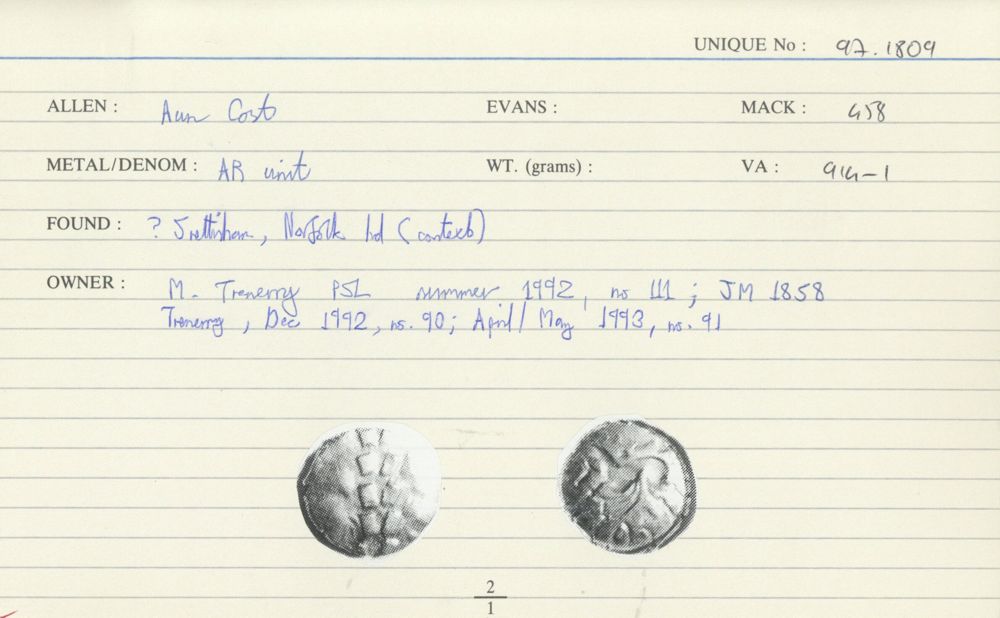 UNIQUE No : 97.1809
ALLEN : Aun Cost EVANS : MACK : 458
METAL/DENOM : AR unit WT. (grams) : VA : 914-1
FOUND : ? Snettisham, Norfolk hd (context)
OWNER : M. Trenerry PSL summer 1992, no 111 ; JM 1858
Trenerry, Dec 1992, no. 90; April/May 1993, no. 91
2
1